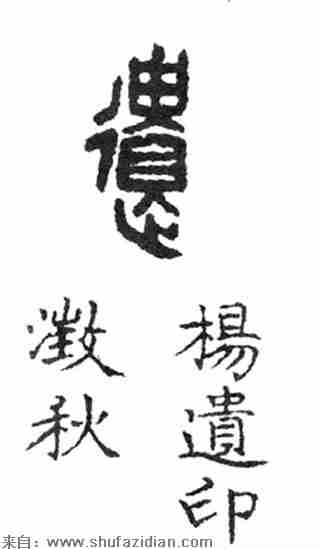 遺
楊遺印
澂秋
来自：www.shufazidian.com